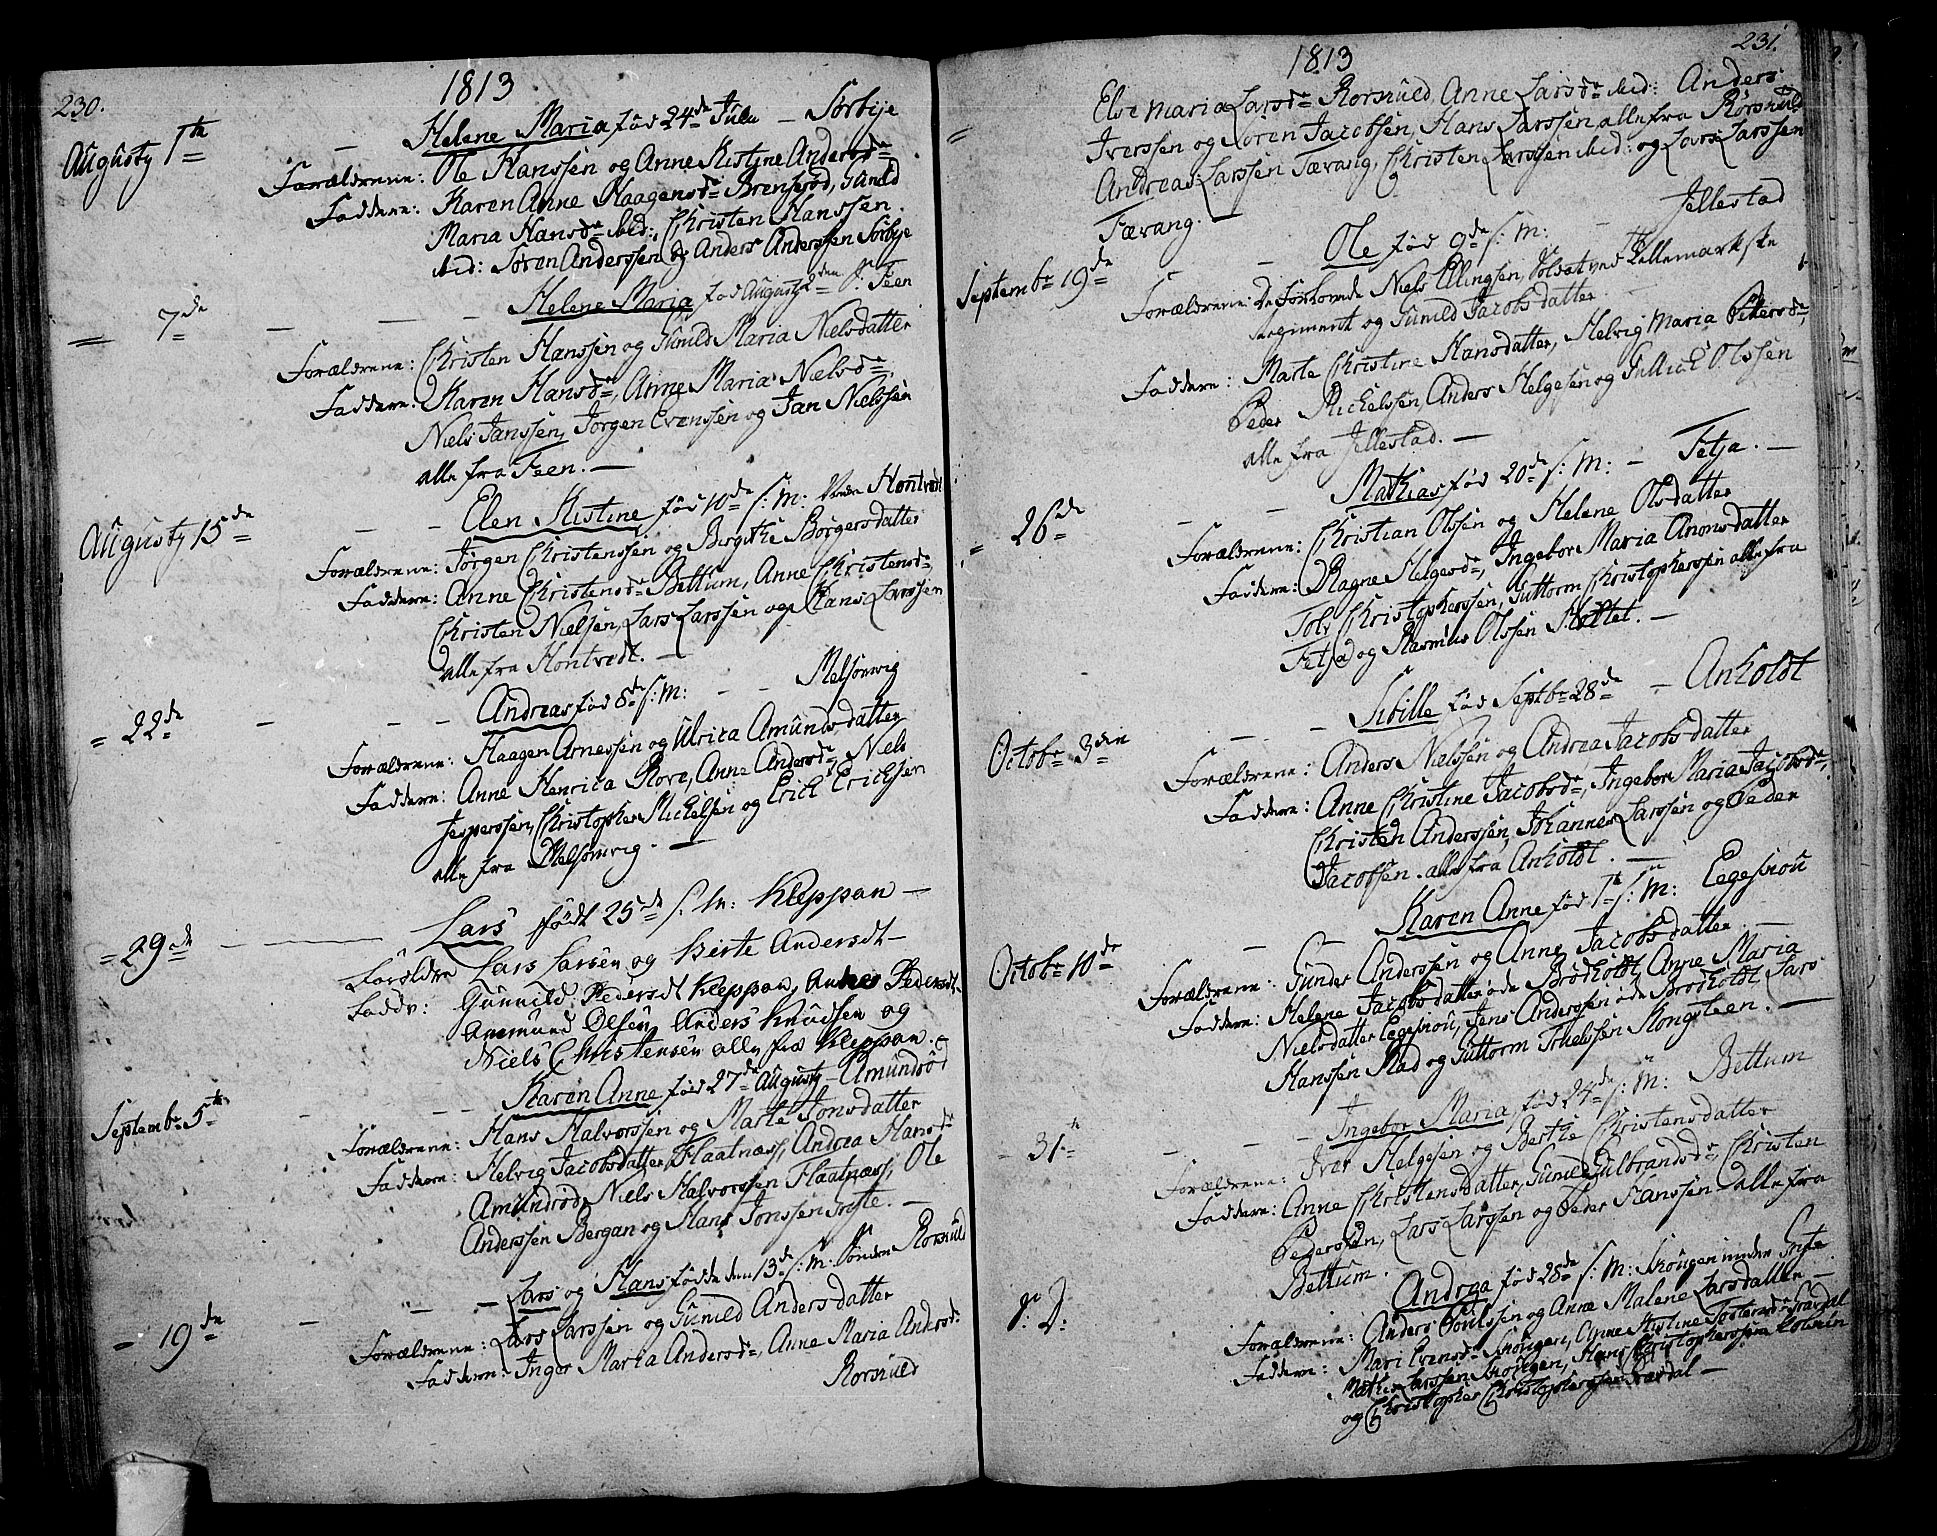 230.
1813
Augusty 1te — Helene Maria fød 24de Julii — Sørbye
Forældrene: Ole Hanssen og Anne Kistine Andersdr
Faddere: Karen Anne Haagensdr Brenserød, Gunild
Maria Hansdr ibid:, Christen Hanssen
ibid: Søren Anderssen og Anders Anderssen Sørbye
— 7de — — — Helene Maria fød Augusty 2den S: Feen
Forældrene: Christen Hanssen og Gunild Maria Nielsdatter
Faddere: Karen Hansdr, Anne Maria Nielsdr,
Niels Janssen, Jørgen Evenssen og Jan Nielssen
alle fra Feen. —
Augusty 15de — — Elen Kistine fød 10de s: M: Hontvedt
Forældrene: Jørgen Christenssen og Birgithe Børgersdatter
Faddere: Anne Christensdr Bettum, Anne Christensdr,
Christen Nielsen, Lars Larssen og Hans Larssen
alle fra Hontvedt. —
= 22de — — — Andreas fød 8de s: M: — — Melsomvig
Forældrene: Haagen Arnessen og Ulrica Amundsdatter
Faddere: Anne Henrica Rore, Anne Andersdr, Niels
Jesperssen, Christopher Mickelsen og Erich Erichsen
alle fra Melsomvig. —
= 29de — Lars født 25de s. m: Kleppan —
Forældre Lars Larsen og Berte Andersdt —
Faddr: Gunnild Pedersdt Kleppan, Pedersdt
Aasmund Olsen Anders Knudsen og
Niels Christensen alle fra Kleppan. —
Septembr 5te — — Karen Anne fød 27de Augusty — Amundrød
Forældrene: Hans Halvorssen og Marte Jonsdatter
Faddere: Helvig Jacobsdatter Flaatnæss, Andrea Hansdr
Amundrød, Niels Halvorssen Flaatnæss, Ole
Anderssen Bergan og Hans Jonssen Gryte. —
— 19de — — — Lars og Hans fødde den 13de s: M. Søndre Rorsuld
Forældrene: Lars Larssen og Gunild Andersdatter
Faddere: Inger Maria Andersdr, Anne Maria Andersdr
Rorsuld
231.
1813
= Else Maria Larsdr Rorsuld, Anne Larsdr ibid: Anders
Iverssen og Søren Jacobssen, Hans Larssen alle fra Rørsuld
Andreas Larssen Færvang, Christen Larssen ibid: og Lars Larssen
Færvang. —
Septembr 19de — Ole fød 9de s: M: — Jellestad
Forældrene: De Forlovede Niels Ellingsen, Soldat ved Tellemarkske
regiment og Gunild Jacobsdatter
Faddere: Marte Christine Hansdatter, Helvig Maria Pedersdr,
Peder Mickelssen, Anders Helgesen og Gullich Olssen
alle fra Jellestad. —
= 26de — — Mathias fød 20de s: M: — Fetja. —
Forældrene: Christian Olssen og Helene Olsdatter
Faddere: Ragne Helgesdr, Ingebor Maria Anonsdatter
Tolv Christopherssen, Guttorm Christopherssen alle fra
Fetja og Rasmus Olssen Slottet. —
Octobr 3den — — — Sibille fød Septbr 28de — Anholdt
Forældrene: Anders Nielssen og Andrea Jacobsdatter
Faddere: Anne Christine Jacobsdr, Ingebor Maria Jacobsdr,
Christen Anderssen, Johannes Larssen og Peder
Jacobsen. alle fra Anholdt. —
Octobr 10de — — Karen Anne fød 1te s: M: Eegeskou
Forældrene: Gunder Anderssen og Anne Jacobsdatter —
Faddere: Helene Jacobsdatter øde Brødholdt, Anne Maria
Nielsdatter Eegeskou, Jens Anderssen øde Brødholdt Lars
Hanssen Rad og Guttorm Tohelssen Kongsteen. —
— 31te — — — Ingebor Maria fød 24de s: M: Bettum
Forældrene: Iver Helgesen og Berthe Christensdatter
Faddere: Anne Christensdatter, Gunild Gulbrandsdr, Christen
Pederssen, Lars Larssen og Peder Hanssen alle fra
Bettum.
s: D: Andrea fød 28de s: M: Skougen under Gryte
Forældrene: Anders Poulssen og Anne Malene Larsdatter —
Faddere: Mari Evensdr Skougen, Anne Kistine Tostensdr Gravdal
Mathis Larssen Skougen, Hans Christopherssen Holmen
og Christopher Christopherssen Gravdal —